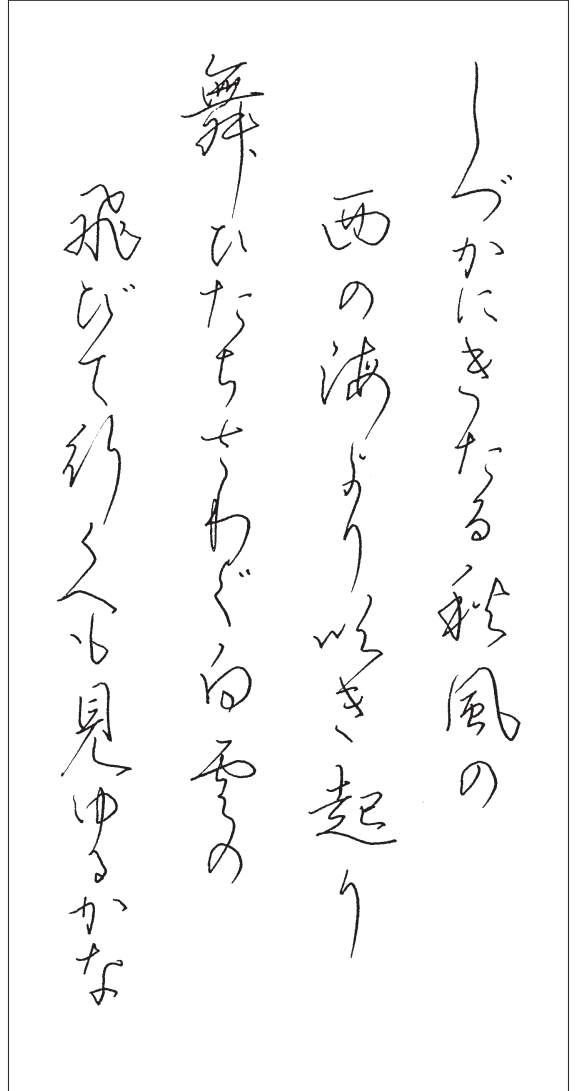 しづかにきたる秋風の
西の海より吹き起り
舞ひたちさわぐ白雲の
飛びて行くへも見ゆるかな